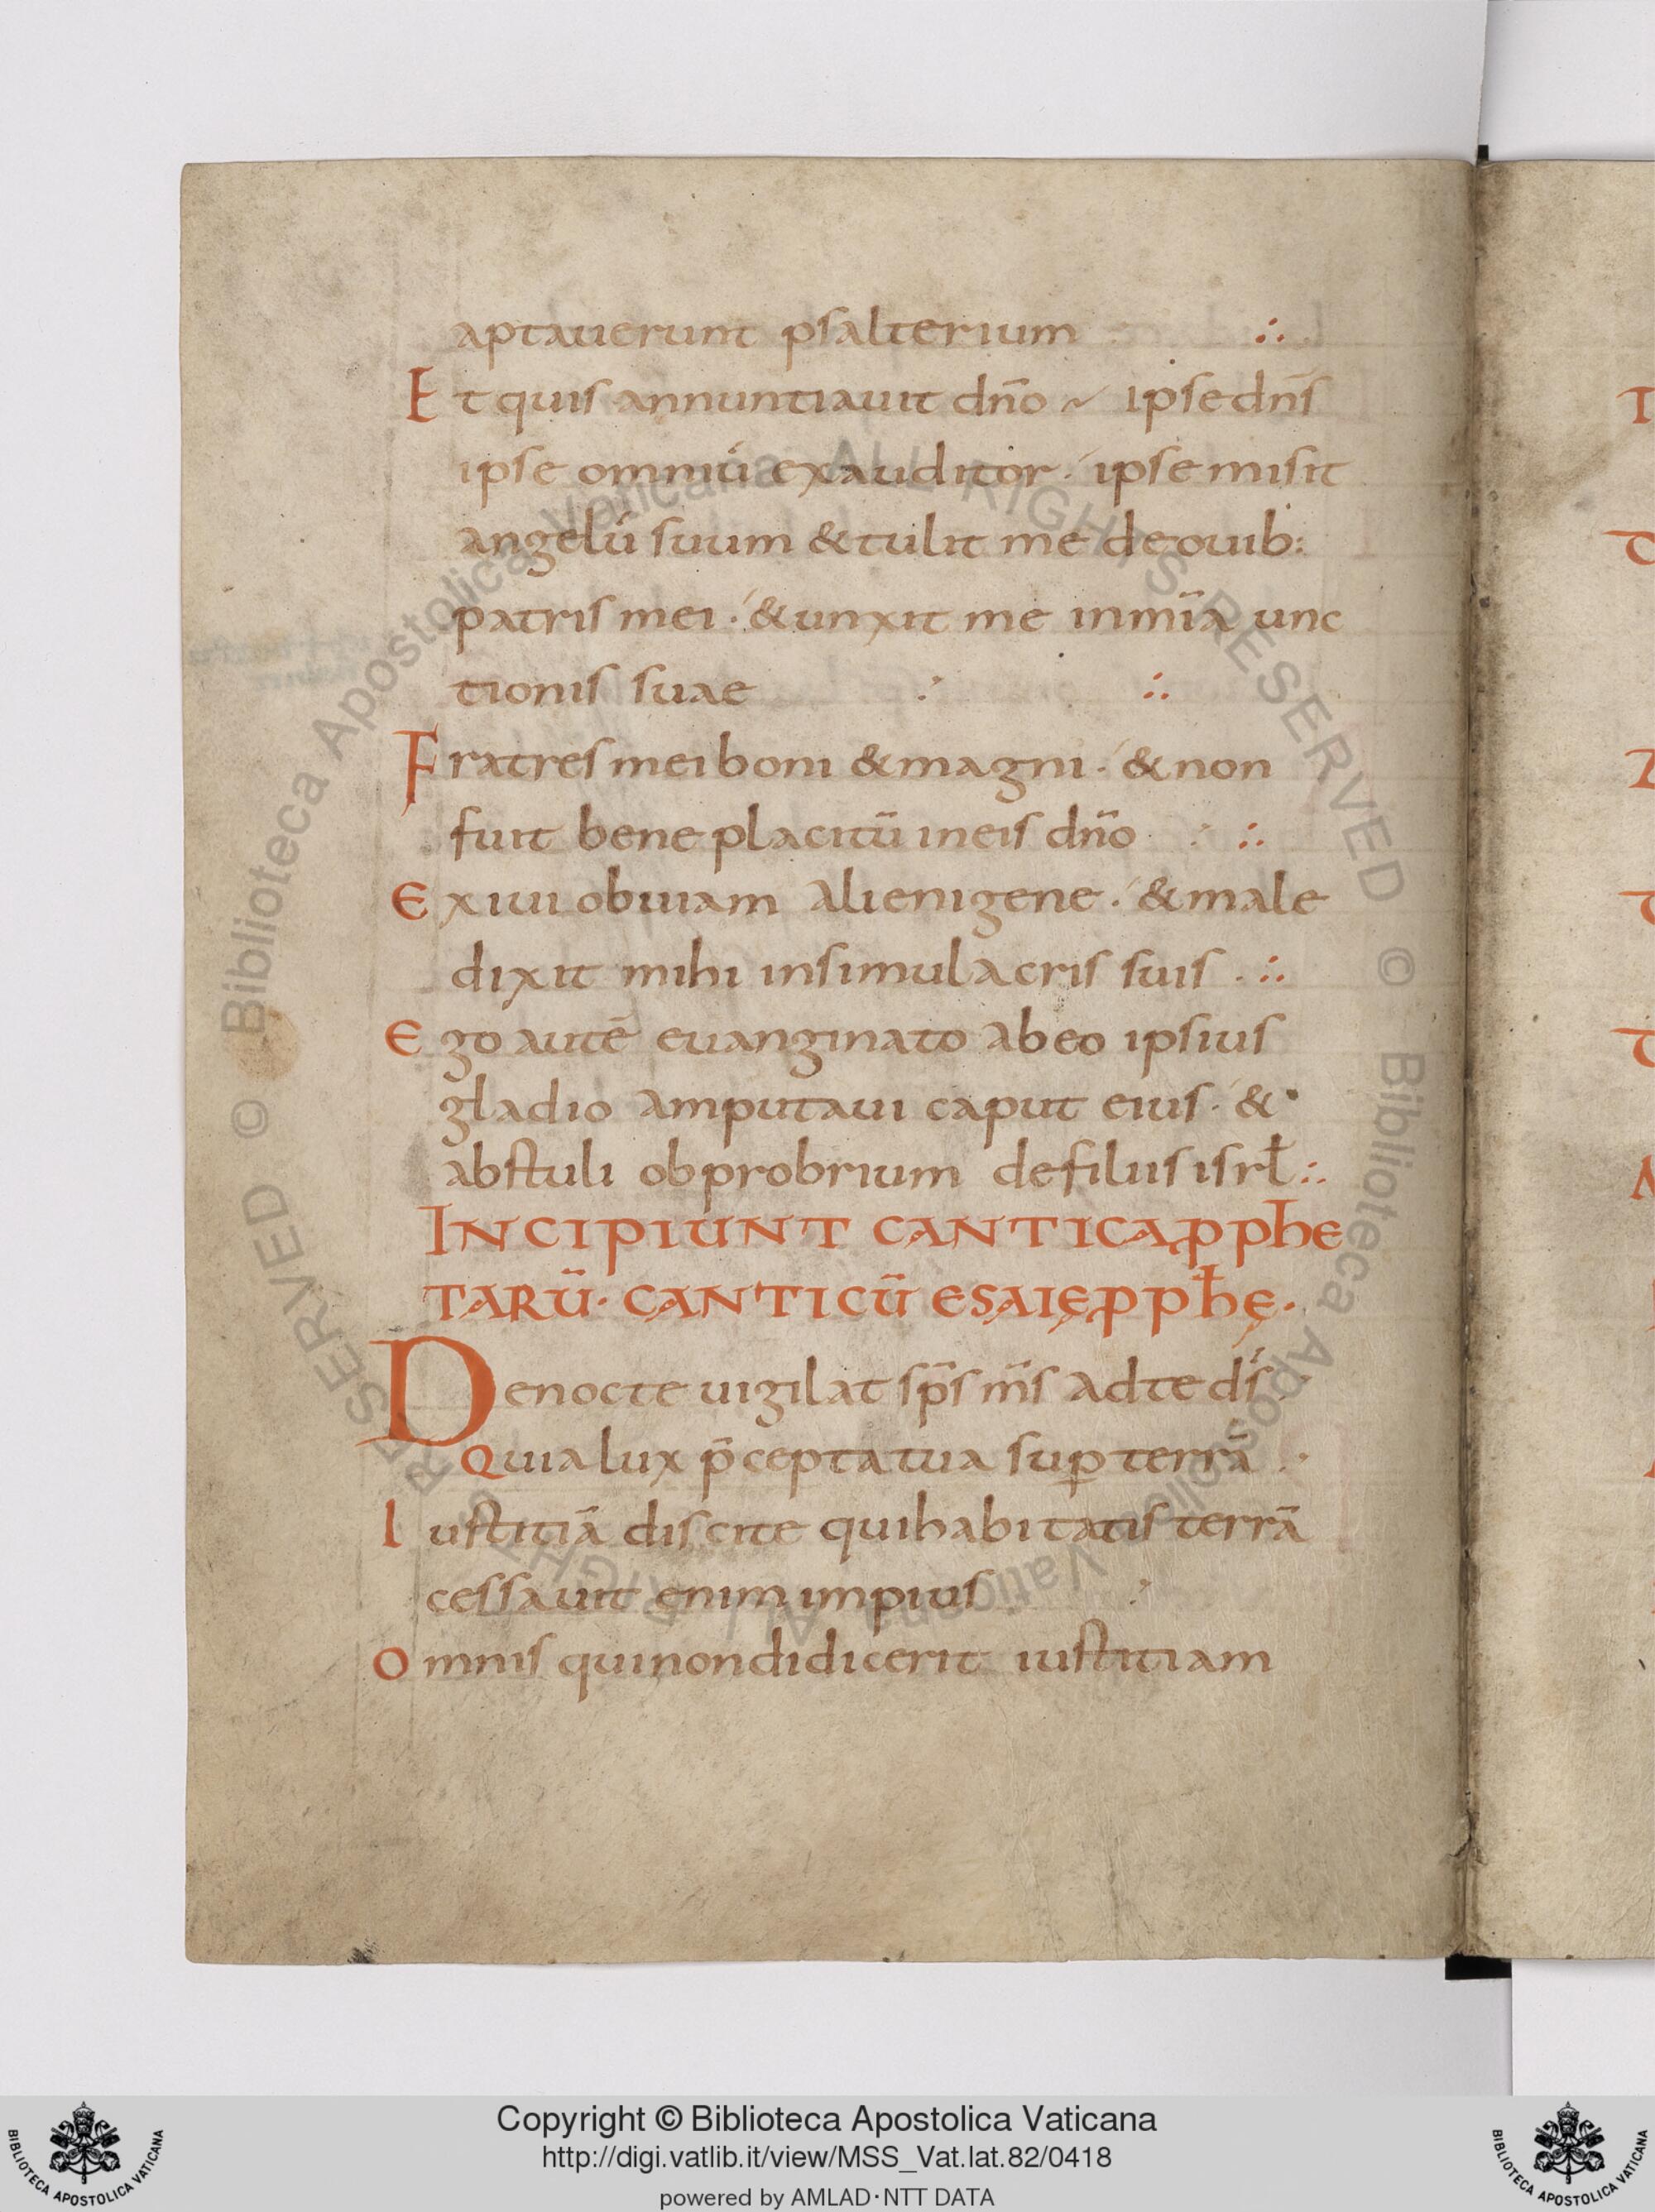 aptauerunt psalterium ∴
Et quis annuntiauit dn̄o ~ ipse dn̄s
ipse omniū exauditor ipse misit
angelū suum & tulit me de ouib:
patris mei · & unxit me in mīa unc
tionis suae ∴
Fratres mei boni & magni · & non
fuit bene placitū in eis dn̄o ∴
Exiui obuiam alienigene · & male
dixit mihi in simulacris suis · ∴
Ego autē euanginato ab eo ipsius
gladio amputaui caput eius · &
abstuli obprobrium de filiis isrł ∴
INCIPIUNT CANTICA ꝓphe
TARŪ · CANTICŪ ESAIĘ ꝓpħę ·
De nocte uigilat sp̄s m̄s ad te dś
Quia lux p̄cepta tua suꝑ terrā
Iustitiā discite qui habitatis terrā
cessauit enim impius
Omnis qui non didicerit iustitiam
T
© Biblioteca Apostolica Vaticana ALL RIGHTS RESERVED © Biblioteca Apostolica Vaticana ALL RIGHTS RESERVED
Copyright © Biblioteca Apostolica Vaticana
http://digi.vatlib.it/view/MSS_Vat.lat.82/0418
powered by AMLAD·NTT DATA
BIBLIOTECA APOSTOLICA VATICANA
BIBLIOTECA APOSTOLICA VATICANA